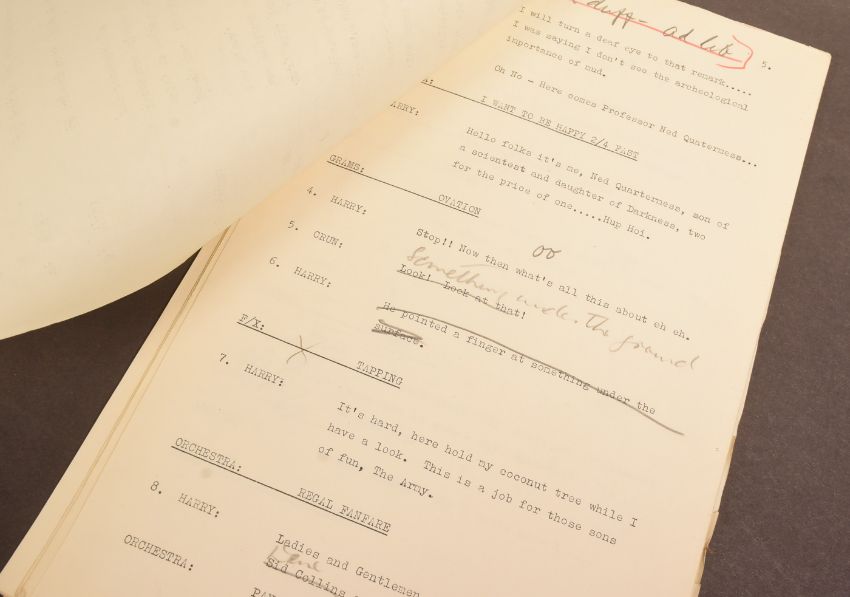 duff - ad lib
5.
I will turn a deaf eye to that remark.....
I was saying I don't see the archeological
importance of mud.
Oh No - Here comes Professor Ned Quaterness...
I WANT TO BE HAPPY 2/4 PAST
ARRY:
Hello folks it's me, Ned Quarterness, son of
a scientest and daughter of Darkness, two
for the price of one.....Hup Hoi.
GRAMS: OVATION
4. HARRY: Stop!! Now then what's all this about eh eh.
oo
5. CRUN: Look! Look at that!
something under the ground
6. HARRY: He pointed a finger at something under the
surface.
F/X: X TAPPING
7. HARRY: It's hard, here hold my coconut tree while I
have a look. This is a job for those sons
of fun, The Army.
ORCHESTRA: REGAL FANFARE
8. HARRY: Ladies and Gentlemen
Sid Collins
ORCHESTRA: